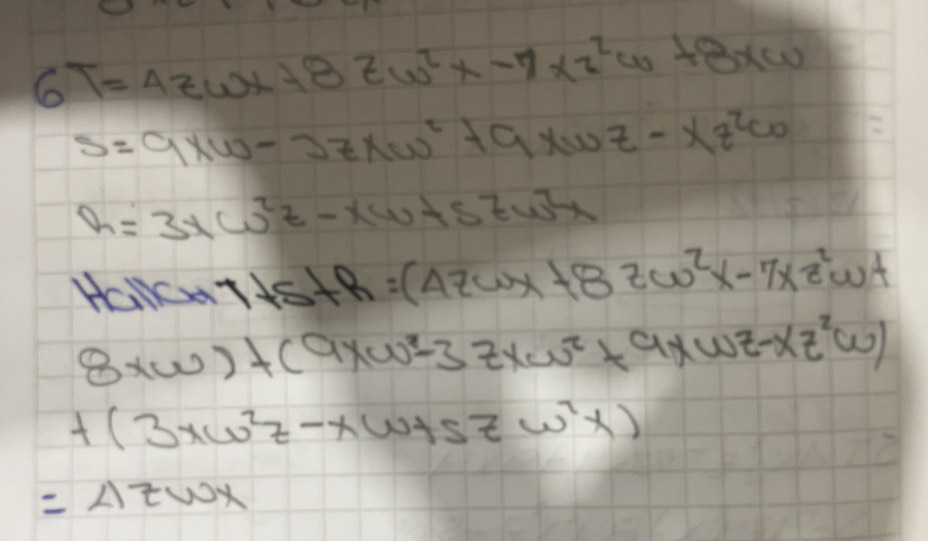 6 T= 4zwx + 8 zw²x - 7 xz²w + 8xw
S= 9xw - 3zxw² + 9xwz - xz²w
R= 3xw²z - xw + 5zw²x
Hallar T+S+R = (4zwx + 8 zw²x - 7xz²w +
8xw) + (9xw - 3zxw² + 9xwz - xz²w)
+ (3xw²z - xw + 5z w²x)
= 4zwx